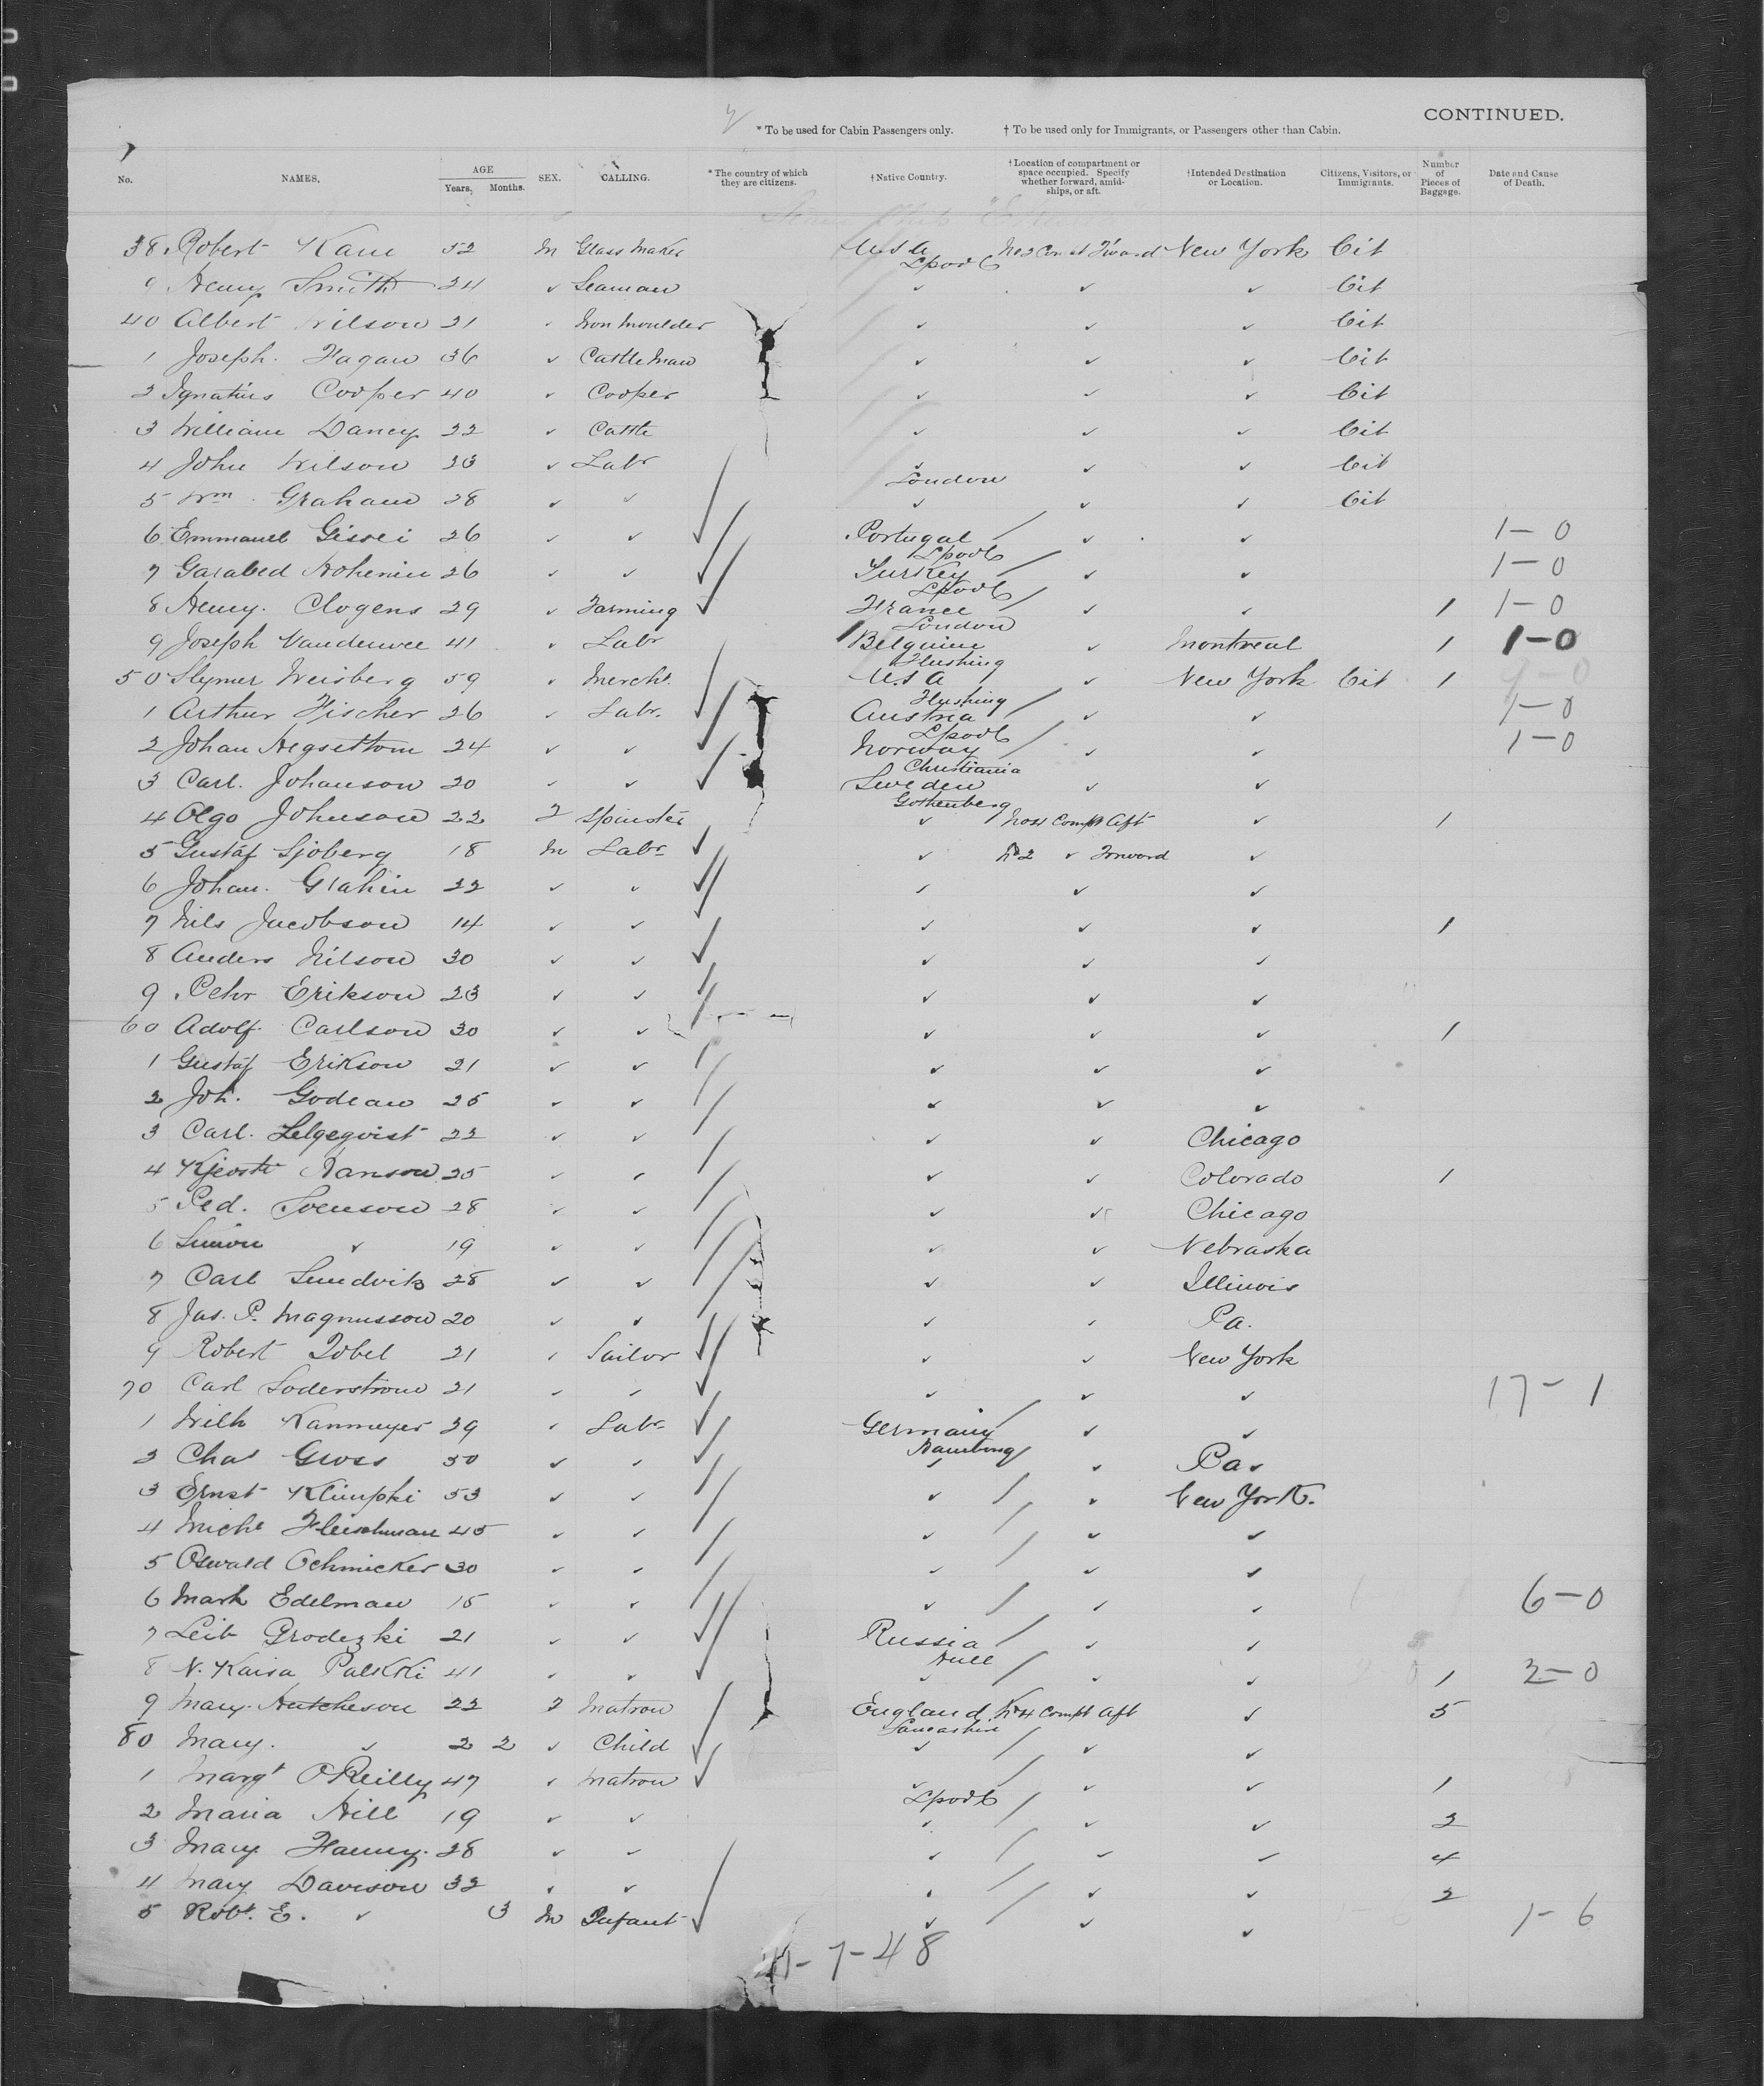 CONTINUED.
* To be used for Cabin Passengers only. † To be used only for Immigrants, or Passengers other than Cabin.
No. NAMES. AGE Years. Months. SEX. CALLING. * The country of which they are citizens. † Native Country. † Location of compartment or space occupied. Specify whether forward, amidships, or aft. † Intended Destination or Location. Citizens, Visitors, or Immigrants. Number of Pieces of Baggage. Date and Cause of Death.
38 Robert Kane 52 M Glass Maker U.S.A Lpool No 2 Comp Forward New York Cit
9 Henry Smith 24 ✓ Seaman ✓ ✓ ✓ Cit
40 Albert Wilson 21 ✓ Iron Moulder ✓ ✓ ✓ Cit
1 Joseph Fagan 36 ✓ Cattle Man ✓ ✓ ✓ Cit
2 Ignatius Cooper 40 ✓ Cooper ✓ ✓ ✓ Cit
3 William Dancy 22 ✓ Cattle ✓ ✓ ✓ Cit
4 John Wilson 23 ✓ Labr ✓ London ✓ ✓ Cit
5 Wm. Graham 28 ✓ ✓ ✓ ✓ ✓ Cit
6 Emmanuel 26 ✓ ✓ Portugal Lpool ✓ ✓ 1-0
7 Garabed 26 ✓ ✓ Turkey Lpool ✓ ✓ 1-0
8 Henry Clogens 29 ✓ Farming France London ✓ ✓ 1 1-0
9 Joseph Vanderwee 41 ✓ Labr Belguim Flushing ✓ Montreal 1 1-0
50 Slymer Weisberg 59 ✓ Mercht. U.S A Flushing ✓ New York Cit 1
1 Arthur Fischer 26 ✓ Labr. Austria Lpool ✓ ✓ 1-0
2 Johan 24 ✓ ✓ Norway Christiania ✓ ✓ 1-0
3 Carl Johanson 20 ✓ ✓ Sweden Gothenberg ✓ ✓
4 Olgo Johnson 22 F Spinster ✓ No 4 Compt Aft ✓ 1
5 Gustaf Sjoberg 18 M Labr ✓ No 2 ✓ Forward ✓
6 Johan Grahin 22 ✓ ✓ ✓ ✓ ✓
7 Nils Jacobson 14 ✓ ✓ ✓ ✓ ✓ 1
8 Anders Nilson 30 ✓ ✓ ✓ ✓ ✓
9 Pehr Erikson 23 ✓ ✓ ✓ ✓ ✓
60 Adolf Carlson 30 ✓ ✓ ✓ ✓ ✓ 1
1 Gustaf Erikson 21 ✓ ✓ ✓ ✓ ✓
2 Joh. Godean 25 ✓ ✓ ✓ ✓ ✓
3 Carl 22 ✓ ✓ ✓ ✓ Chicago
4 Hanson 25 ✓ ✓ ✓ ✓ Colorado 1
5 Ped. Svenson 28 ✓ ✓ ✓ ✓ Chicago
6 Simon ✓ 19 ✓ ✓ ✓ ✓ Nebraska
7 Carl Lundvik 28 ✓ ✓ ✓ ✓ Illinois
8 Jas. P. Magnusson 20 ✓ ✓ ✓ ✓ Pa.
9 Robert Tobel 21 ✓ Sailor ✓ ✓ New York
70 Carl Soderstrom 21 ✓ ✓ ✓ ✓ ✓ 17-1
1 Wilh Kanmeyer 39 ✓ Labr Germany Hamburg ✓ ✓
2 Chas Gross 50 ✓ ✓ ✓ ✓ Pa.
3 Ernst Klimpki 53 ✓ ✓ ✓ ✓ New York.
4 Michl Fleischman 45 ✓ ✓ ✓ ✓ ✓
5 Oswald Ochmicker 30 ✓ ✓ ✓ ✓ ✓
6 Mark Edelman 15 ✓ ✓ ✓ ✓ ✓ 6-0
7 Leib Grodezki 21 ✓ ✓ Russia Hull ✓ ✓
8 N. Kaisa Palkki 41 ✓ ✓ ✓ ✓ ✓ 1 2-0
9 Mary Hutcheson 22 F Matron England Lancashire No 4 Compt Aft ✓ 5
80 Mary ✓ 2 2 ✓ Child ✓ ✓ ✓
1 Margt O'Reilly 47 ✓ Matron ✓ Lpool ✓ ✓ 1
2 Maria Hill 19 ✓ ✓ ✓ ✓ ✓ 2
3 Mary Fanny 28 ✓ ✓ ✓ ✓ ✓ 4
4 Mary Davison 32 ✓ ✓ ✓ ✓ ✓ 2
5 Robt. E. ✓ 3 M Infant ✓ ✓ ✓ 1-6
41-7-48